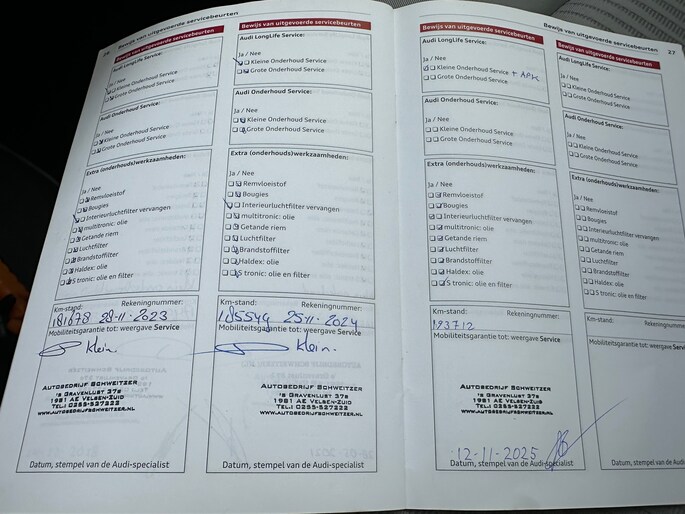 26 Bewijs van uitgevoerde servicebeurten
Bewijs van uitgevoerde servicebeurten
Audi LongLife Service:
Ja / Nee
Kleine Onderhoud Service
Grote Onderhoud Service
Audi Onderhoud Service:
Ja / Nee
Kleine Onderhoud Service
Grote Onderhoud Service
Extra (onderhouds)werkzaamheden:
Ja / Nee
Remvloeistof
Bougies
Interieurluchtfilter vervangen
multitronic: olie
Getande riem
Luchtfilter
Brandstoffilter
Haldex: olie
S tronic: olie en filter
Km-stand: Rekeningnummer:
181678 28-11-2023
Mobiliteitsgarantie tot: weergave Service
Klein.
Autobedrijf Schweitzer
's Gravenlust 37e
1981 AE Velsen-Zuid
Tel: 0255-527222
www.autobedrijfschweitzer.nl
Datum, stempel van de Audi-specialist
Bewijs van uitgevoerde servicebeurten
Audi LongLife Service:
Ja / Nee
Kleine Onderhoud Service
Grote Onderhoud Service
Audi Onderhoud Service:
Ja / Nee
Kleine Onderhoud Service
Grote Onderhoud Service
Extra (onderhouds)werkzaamheden:
Ja / Nee
Remvloeistof
Bougies
Interieurluchtfilter vervangen
multitronic: olie
Getande riem
Luchtfilter
Brandstoffilter
Haldex: olie
S tronic: olie en filter
Km-stand: Rekeningnummer:
185549 25-11-2024
Mobiliteitsgarantie tot: weergave Service
Klein.
Autobedrijf Schweitzer
's Gravenlust 37e
1981 AE Velsen-Zuid
Tel: 0255-527222
www.autobedrijfschweitzer.nl
Datum, stempel van de Audi-specialist
Bewijs van uitgevoerde servicebeurten 27
Bewijs van uitgevoerde servicebeurten
Audi LongLife Service:
Ja / Nee
Kleine Onderhoud Service
Grote Onderhoud Service + APK
Audi Onderhoud Service:
Ja / Nee
Kleine Onderhoud Service
Grote Onderhoud Service
Extra (onderhouds)werkzaamheden:
Ja / Nee
Remvloeistof
Bougies
Interieurluchtfilter vervangen
multitronic: olie
Getande riem
Luchtfilter
Brandstoffilter
Haldex: olie
S tronic: olie en filter
Km-stand: Rekeningnummer:
193712
Mobiliteitsgarantie tot: weergave Service
Autobedrijf Schweitzer
's Gravenlust 37e
1981 AE Velsen-Zuid
Tel: 0255-527222
www.autobedrijfschweitzer.nl
12-11-2025
Datum, stempel van de Audi-specialist
Bewijs van uitgevoerde servicebeurten
Audi LongLife Service:
Ja / Nee
Kleine Onderhoud Service
Grote Onderhoud Service
Audi Onderhoud Service:
Ja / Nee
Kleine Onderhoud Service
Grote Onderhoud Service
Extra (onderhouds)werkzaamheden:
Ja / Nee
Remvloeistof
Bougies
Interieurluchtfilter vervangen
multitronic: olie
Getande riem
Luchtfilter
Brandstoffilter
Haldex: olie
S tronic: olie en filter
Km-stand: Rekeningnummer:
Mobiliteitsgarantie tot: weergave Serv
Datum, stempel van de Audi-specialist